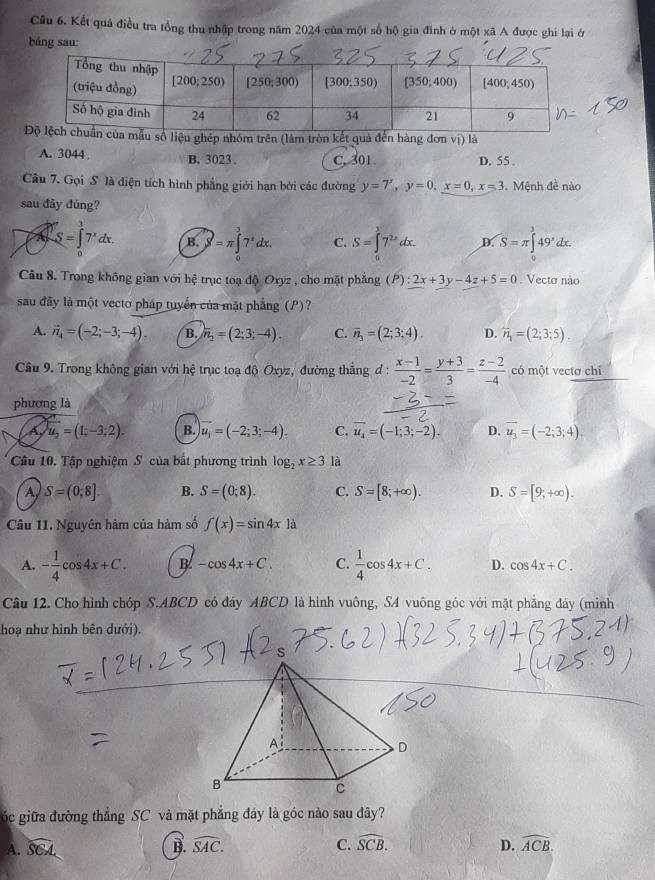 Câu 6. Kết quả điều tra tổng thu nhập trong năm 2024 của một số hộ gia đình ở một xã A được ghi lại ở
bảng sau:
225 275 325 375 425
Tổng thu nhập (triệu đồng) [200;250) [250;300) [300;350) [350;400) [400;450)
Số hộ gia đình 24 62 34 21 9 n= 150
Độ lệch chuẩn của mẫu số liệu ghép nhóm trên (làm tròn kết quả đến hàng đơn vị) là
A. 3044. B. 3023. C. 301. D. 55.
Câu 7. Gọi S là diện tích hình phẳng giới hạn bởi các đường y = 7ˣ, y = 0, x = 0, x = 3. Mệnh đề nào
sau đây đúng?
A. S = ∫₀³ 7ˣ dx. B. S = π∫₀³ 7ˣ dx. C. S = ∫₀³ 7²ˣ dx. D. S = π∫₀³ 49ˣ dx.
Câu 8. Trong không gian với hệ trục toạ độ Oxyz, cho mặt phẳng (P): 2x+3y−4z+5=0. Vectơ nào
sau đây là một vectơ pháp tuyến của mặt phẳng (P)?
A. n⃗₄ = (−2;−3;−4). B. n⃗₂ = (2;3;−4). C. n⃗₃ = (2;3;4). D. n⃗₁ = (2;3;5).
Câu 9. Trong không gian với hệ trục toạ độ Oxyz, đường thẳng d: (x−1)/−2 = (y+3)/3 = (z−2)/−4 có một vectơ chỉ
phương là
A. u₂⃗ = (1;−3;2). B. u₁⃗ = (−2;3;−4). C. u₄⃗ = (−1;3;−2). D. u₃⃗ = (−2;3;4).
Câu 10. Tập nghiệm S của bất phương trình log₂ x ≥ 3 là
A. S = (0;8]. B. S = (0;8). C. S = [8;+∞). D. S = [9;+∞).
Câu 11. Nguyên hàm của hàm số f(x) = sin 4x là
A. −1/4 cos 4x + C. B. −cos 4x + C. C. 1/4 cos 4x + C. D. cos 4x + C.
Câu 12. Cho hình chóp S.ABCD có đáy ABCD là hình vuông, SA vuông góc với mặt phẳng đáy (minh
hoạ như hình bên dưới).
x̄ = (24.255) +(275.62)+(325.34)+(375.21)
+(425.9)
150
=
S
A D
B C
óc giữa đường thẳng SC và mặt phẳng đáy là góc nào sau đây?
A. SCA. B. SAC. C. SCB. D. ACB.